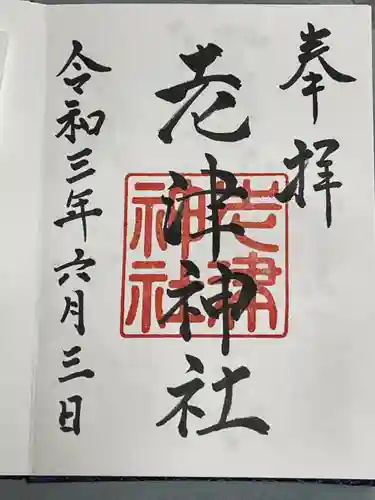 奉拝
老津神社
老津
神社
令和三年六月三日